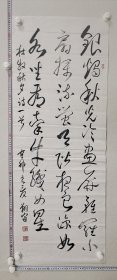 银烛秋光冷画屏轻罗小
扇扑流萤天阶夜色凉如
水坐看牵牛织女星
杜牧秋夕诗一首
辛卯之夏